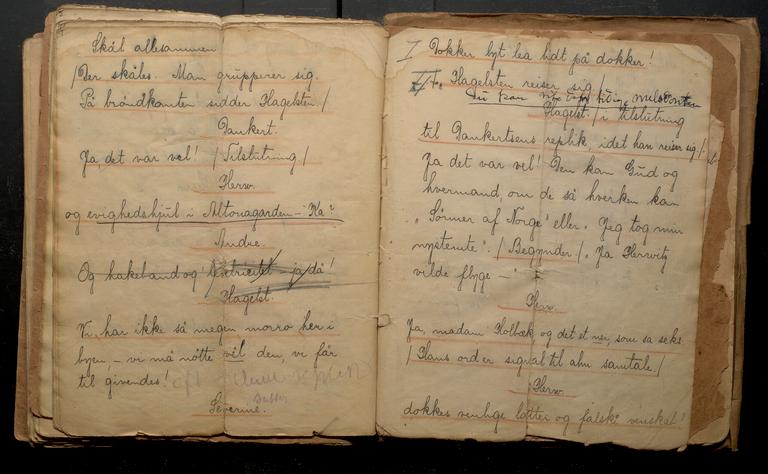 Skål allesammen
/ Der skåles. Man grupperer sig.
På brøndkanten sidder Hagelsten. /
Dankert.
Ja, det var vel! / Tilslutning /
Herw.
og evighedshjul i Altonagården – Ha?
Andre.
Og hakebånd og ja då!
Hagelst.
Vi har ikke så megen morro her i
byen, – vi må nøtte vél den, vi får
til givendes!
Severine.
I Dokker byt lea lidt på dokker!
Hagelsten reiser sig /
Du kean
Hagelst. / i tilslutning
til Dankertsens replik, idet han reiser sig. /
Ja det var vel! Den kan Gud og
hvermand, om de så hverken kan
"Sønner af Norge" eller "Jeg tog min
nystemte". / Begynder / . Ja Herwitz
vilde flyge –
Herw.
Ja, madam Holbæk og det et ner, som sa seks
/ Hans ord er signal til alm samtale. /
Herw.
dokkes venlige låtter og falske venskab!